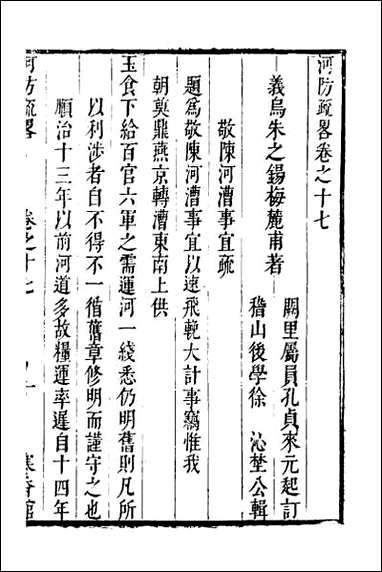 河防疏畧卷之十七
闕里屬員孔貞來元起訂
義烏朱之錫梅麓甫著
稽山後學徐沁埜公輯
敬陳河漕事宜疏
題為敬陳河漕事宜以速飛輓大計事竊惟我
朝奠鼎燕京轉漕東南上供
玉食下給百官六軍之需運河一綫悉仍明舊則凡所
以利涉者自不得不一循舊章修明而謹守之也
順治十三年以前河道多故糧運率遲自十四年
河防疏畧
卷之十七
一
寒香館